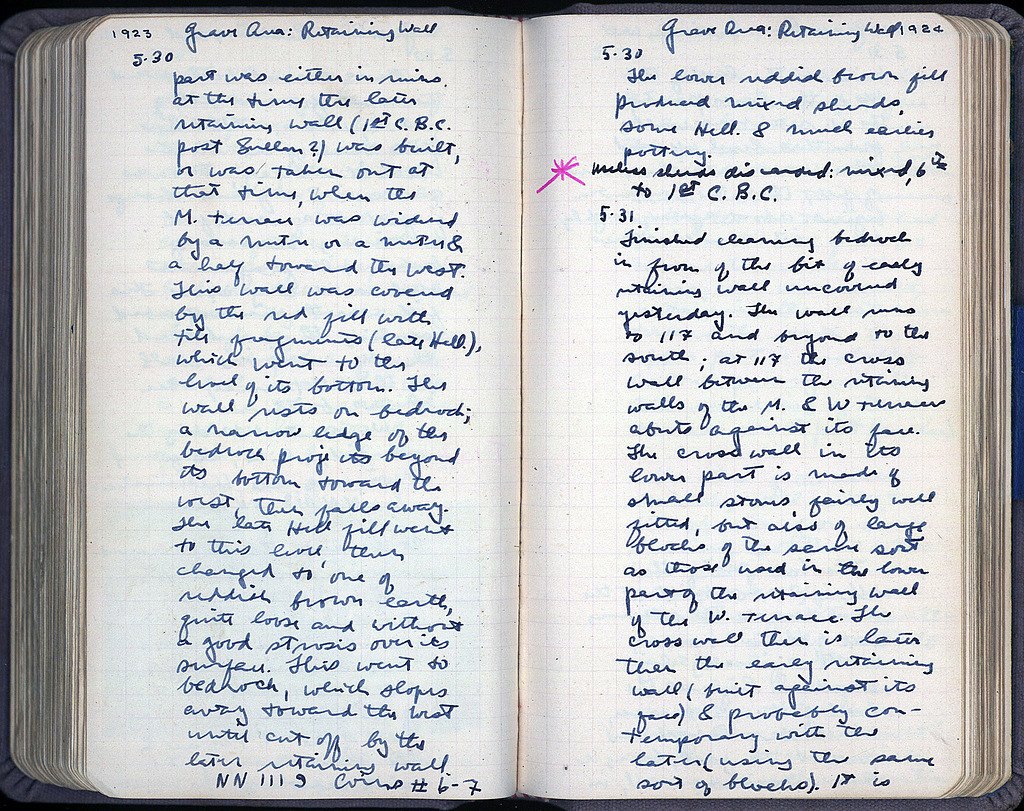 1923 Grave Area: Retaining Wall
5.30
part was either in ruins
at the time the later
retaining wall (1st C. B.C.
post Sullan?) was built,
or was taken out at
that time, when the
M. terrace was widened
by a metre or a metre &
a half toward the west.
This wall was covered
by the red fill with
tile fragments (late Hell.),
which went to the
level of its bottom. The
wall rests on bedrock;
a narrow ledge of the
bedrock projects beyond
its bottom toward the
west, then falls away.
The late Hell fill went
to this level then
changed to one of
reddish brown earth,
quite loose and without
a good strosis over its
surface. This went to
bedrock, which slopes
away toward the west
until cut off by the
later retaining wall
NN 1119 Coins # 6-7
Grave Area: Retaining Wall 1924
5.30
The lower reddish brown fill
produced mixed sherds,
some Hell. & much earlier
pottery.
useless sherds discarded: mixed, 6th
to 1st C. B.C.
5.31
Finished clearing bedrock
in front of the bit of early
retaining wall uncovered
yesterday. The wall runs
to 117 and beyond to the
south; at 117 the cross
wall between the retaining
walls of the M. & W terrace
abuts against its face.
The cross wall in its
lower part is made of
small stones, fairly well
fitted, but also of large
blocks of the same sort
as those used in the lower
part of the retaining wall
of the W. terrace. The
cross wall then is later
than the early retaining
wall (built against its
face) & probably con-
temporary with the
later (using the same
sort of blocks). It is